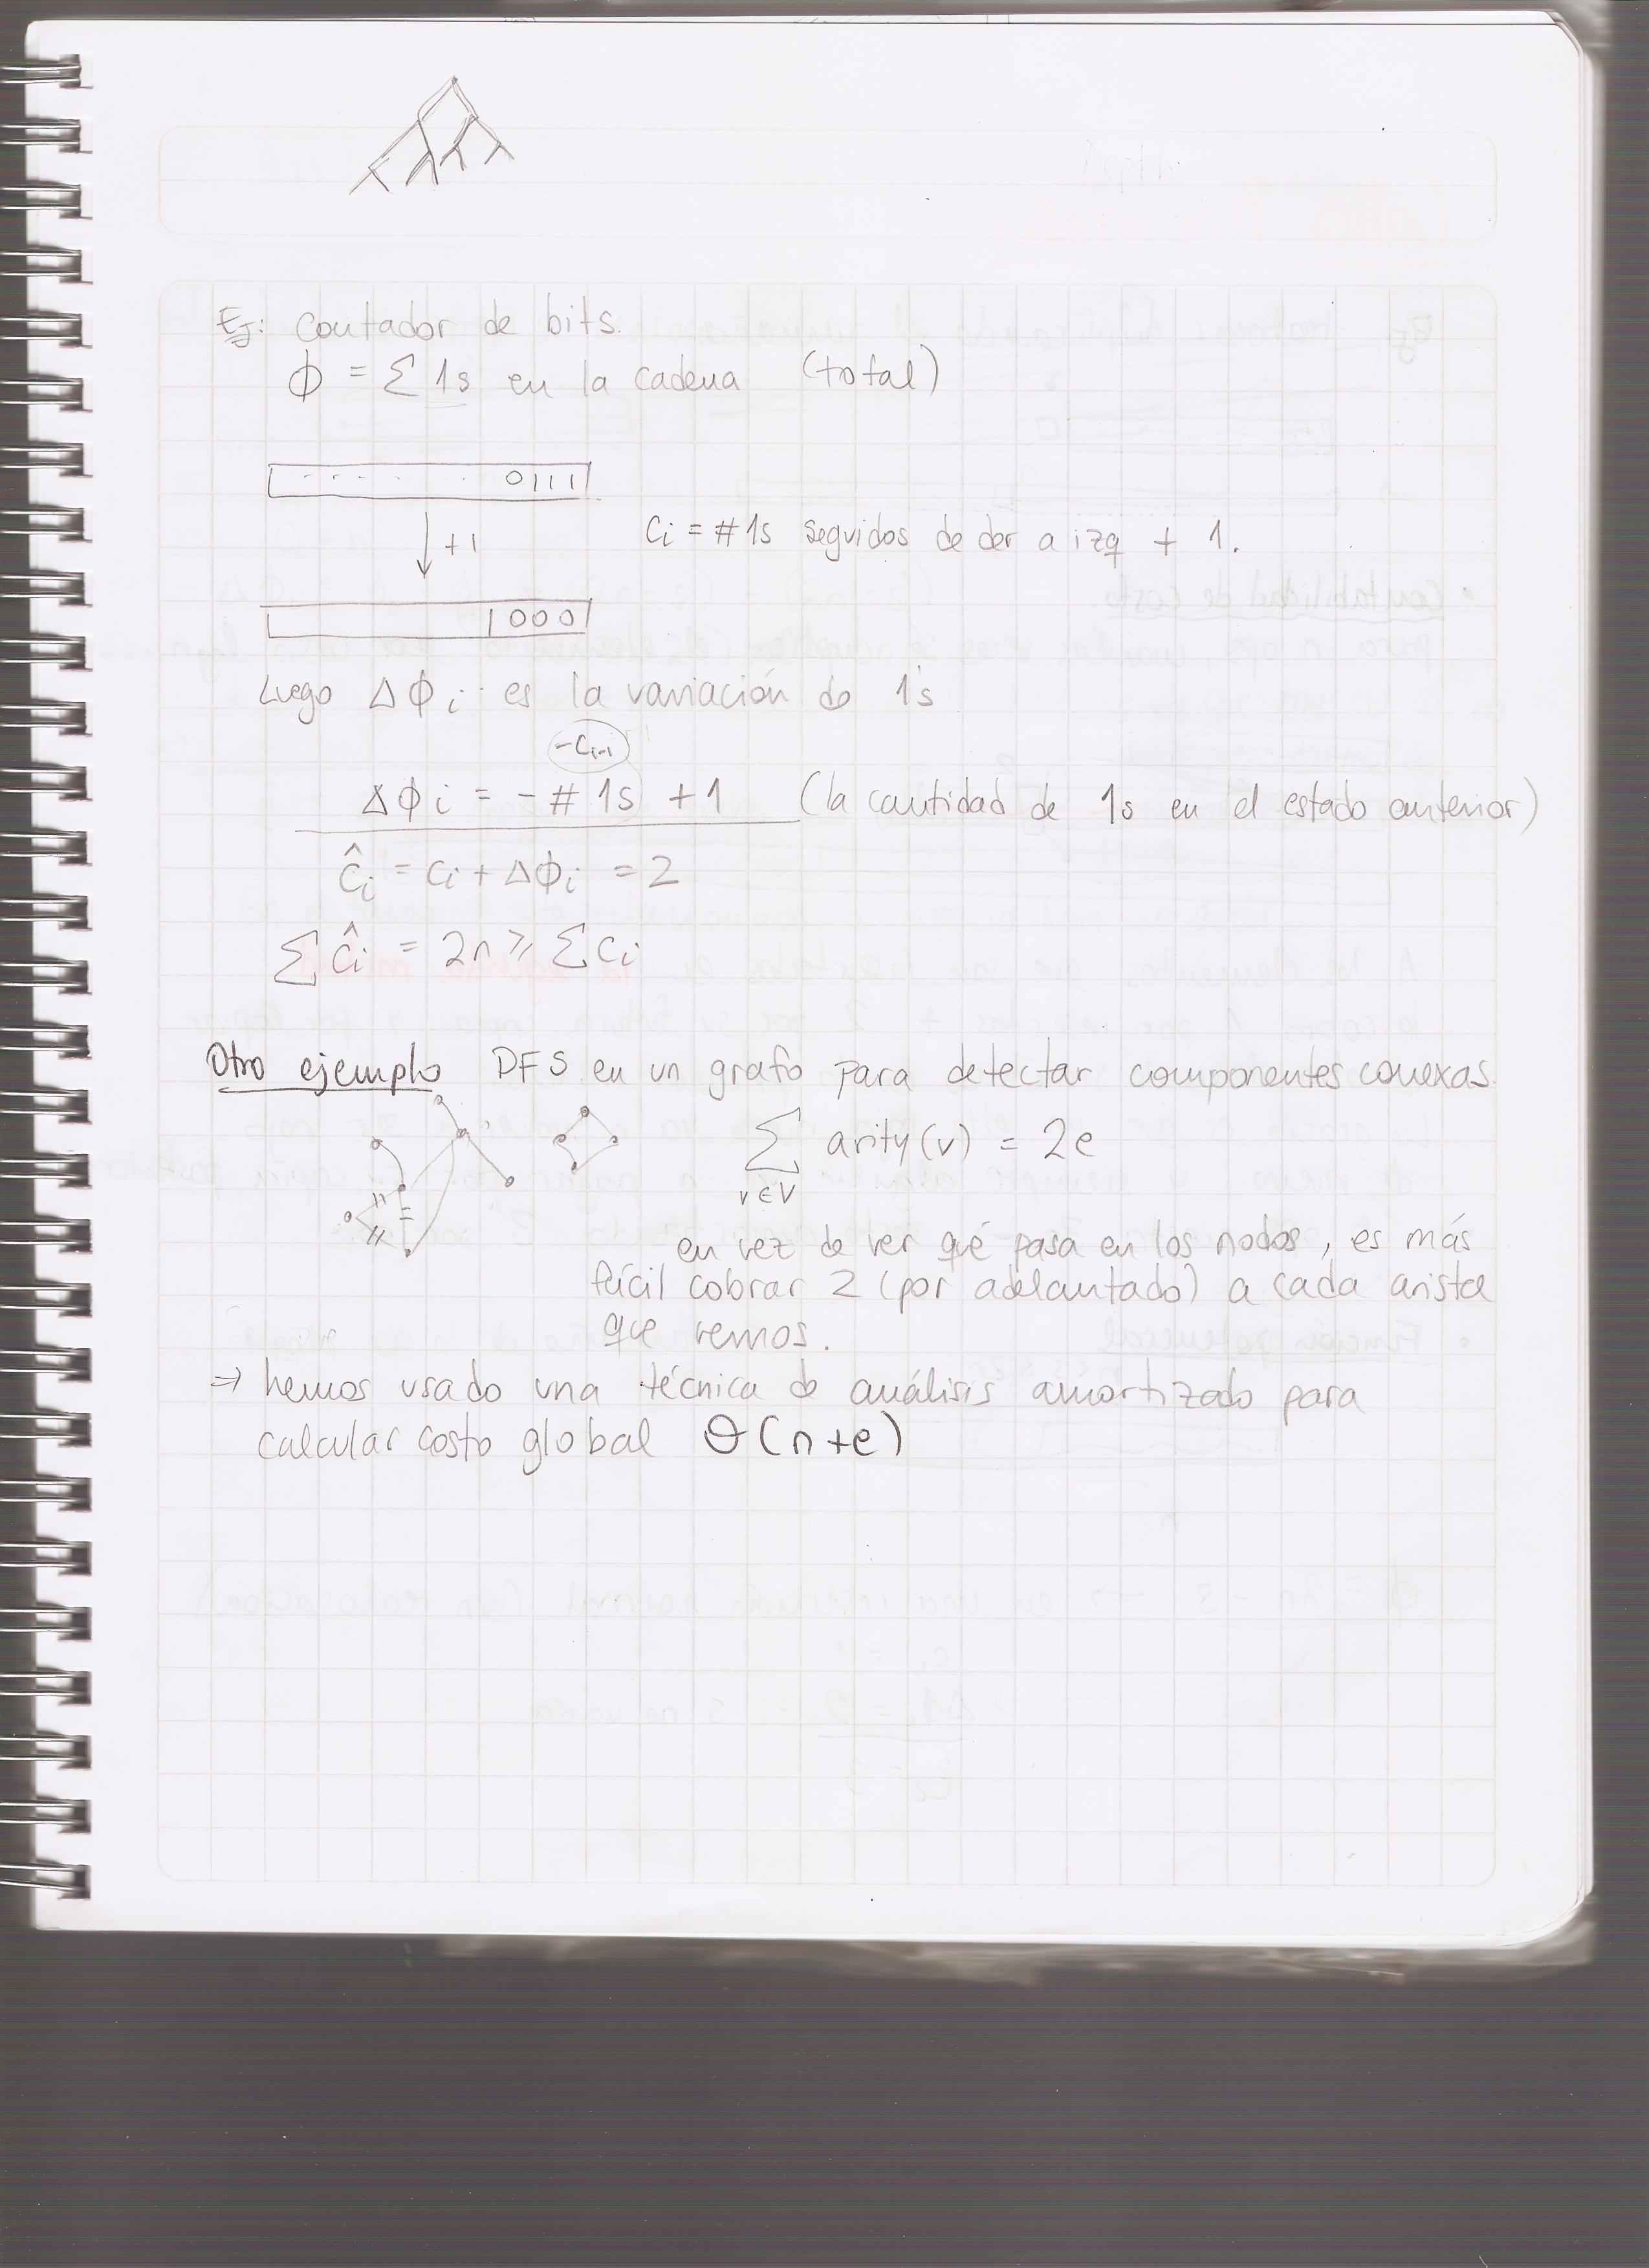 Ej: Contador de bits.
ϕ = Σ 1s en la cadena (total)
- - - - . 0111
+1
Ci = #1s seguidos de der a izq + 1.
1000
Luego Δϕi es la variación de 1's
-Ci-1
Δϕi = - # 1s + 1 (la cantidad de 1s en el estado anterior)
ĉi = ci + Δϕi = 2
Σ ĉi = 2n ≥ Σ ci
Otro ejemplo DFS en un grafo para detectar componentes conexas.
Σ arity(v) = 2e
v∈V
en vez de ver qué pasa en los nodos, es más
fácil cobrar 2 (por adelantado) a cada arista
que vemos.
⇒ hemos usado una técnica de análisis amortizado para
calcular costo global Θ(n+e)